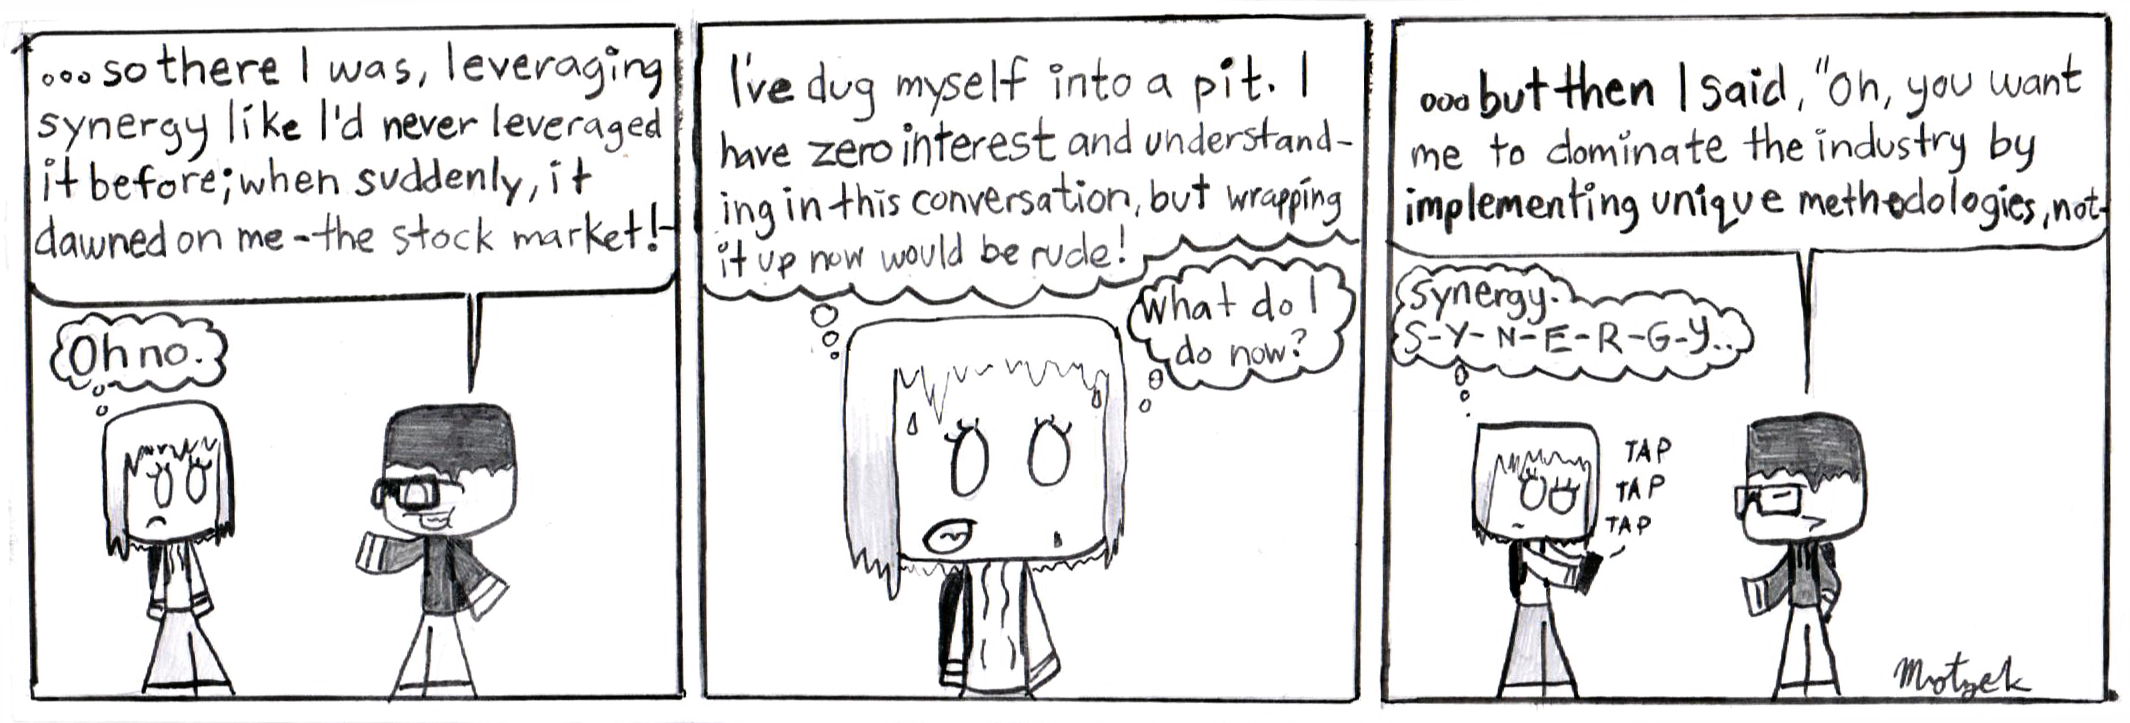 ...so there I was, leveraging
synergy like I'd never leveraged
it before; when suddenly, it
dawned on me - the stock market!-
Oh no.
I've dug myself into a pit. I
have zero interest and understand-
ing in this conversation, but wrapping
it up now would be rude!
What do I
do now?
...but then I said, "Oh, you want
me to dominate the industry by
implementing unique methodologies, not-
Synergy.
S-Y-N-E-R-G-Y...
TAP
TAP
TAP
Motzek